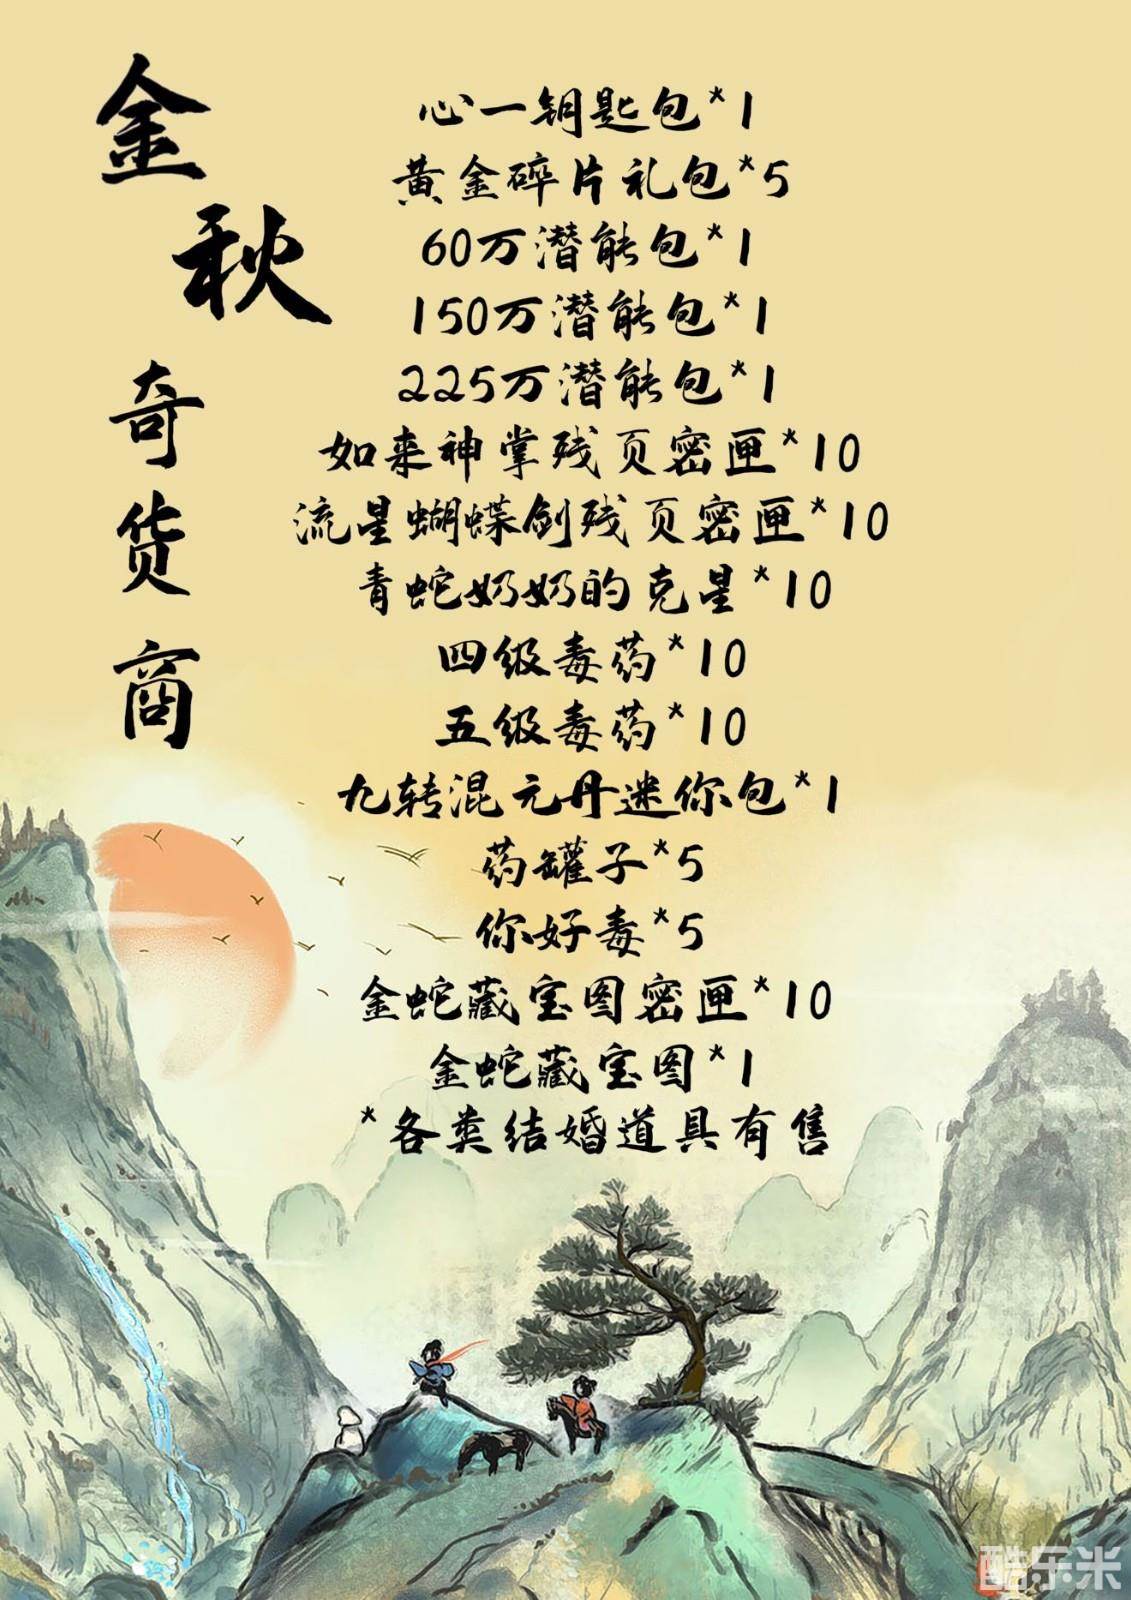 金秋
奇货商
心一钥匙包*1
黄金碎片礼包*5
60万潜能包*1
150万潜能包*1
225万潜能包*1
如来神掌残页密匣*10
流星蝴蝶剑残页密匣*10
青蛇奶奶的克星*10
四级毒药*10
五级毒药*10
九转混元丹迷你包*1
药罐子*5
你好毒*5
金蛇藏宝图密匣*10
金蛇藏宝图*1
*各类结婚道具有售
酷乐米